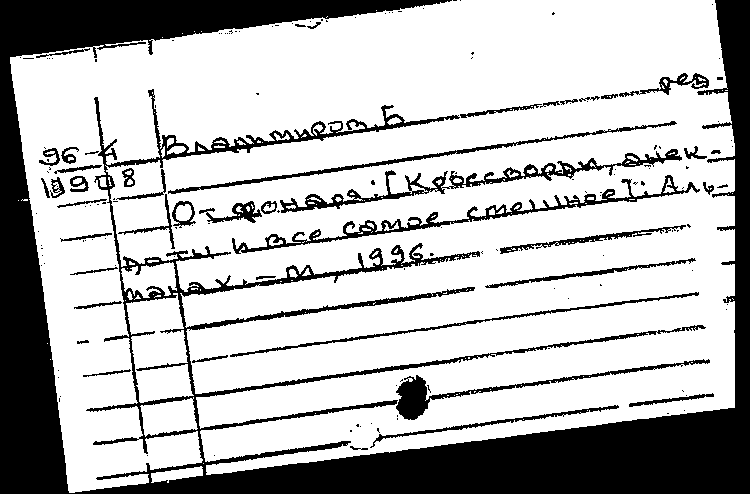 ред.
96-4 Владимиров, Б
19908
От фонаря: [Кроссворды, анек-
доты и все самое смешное]: Аль-
манах. – М, 1996.